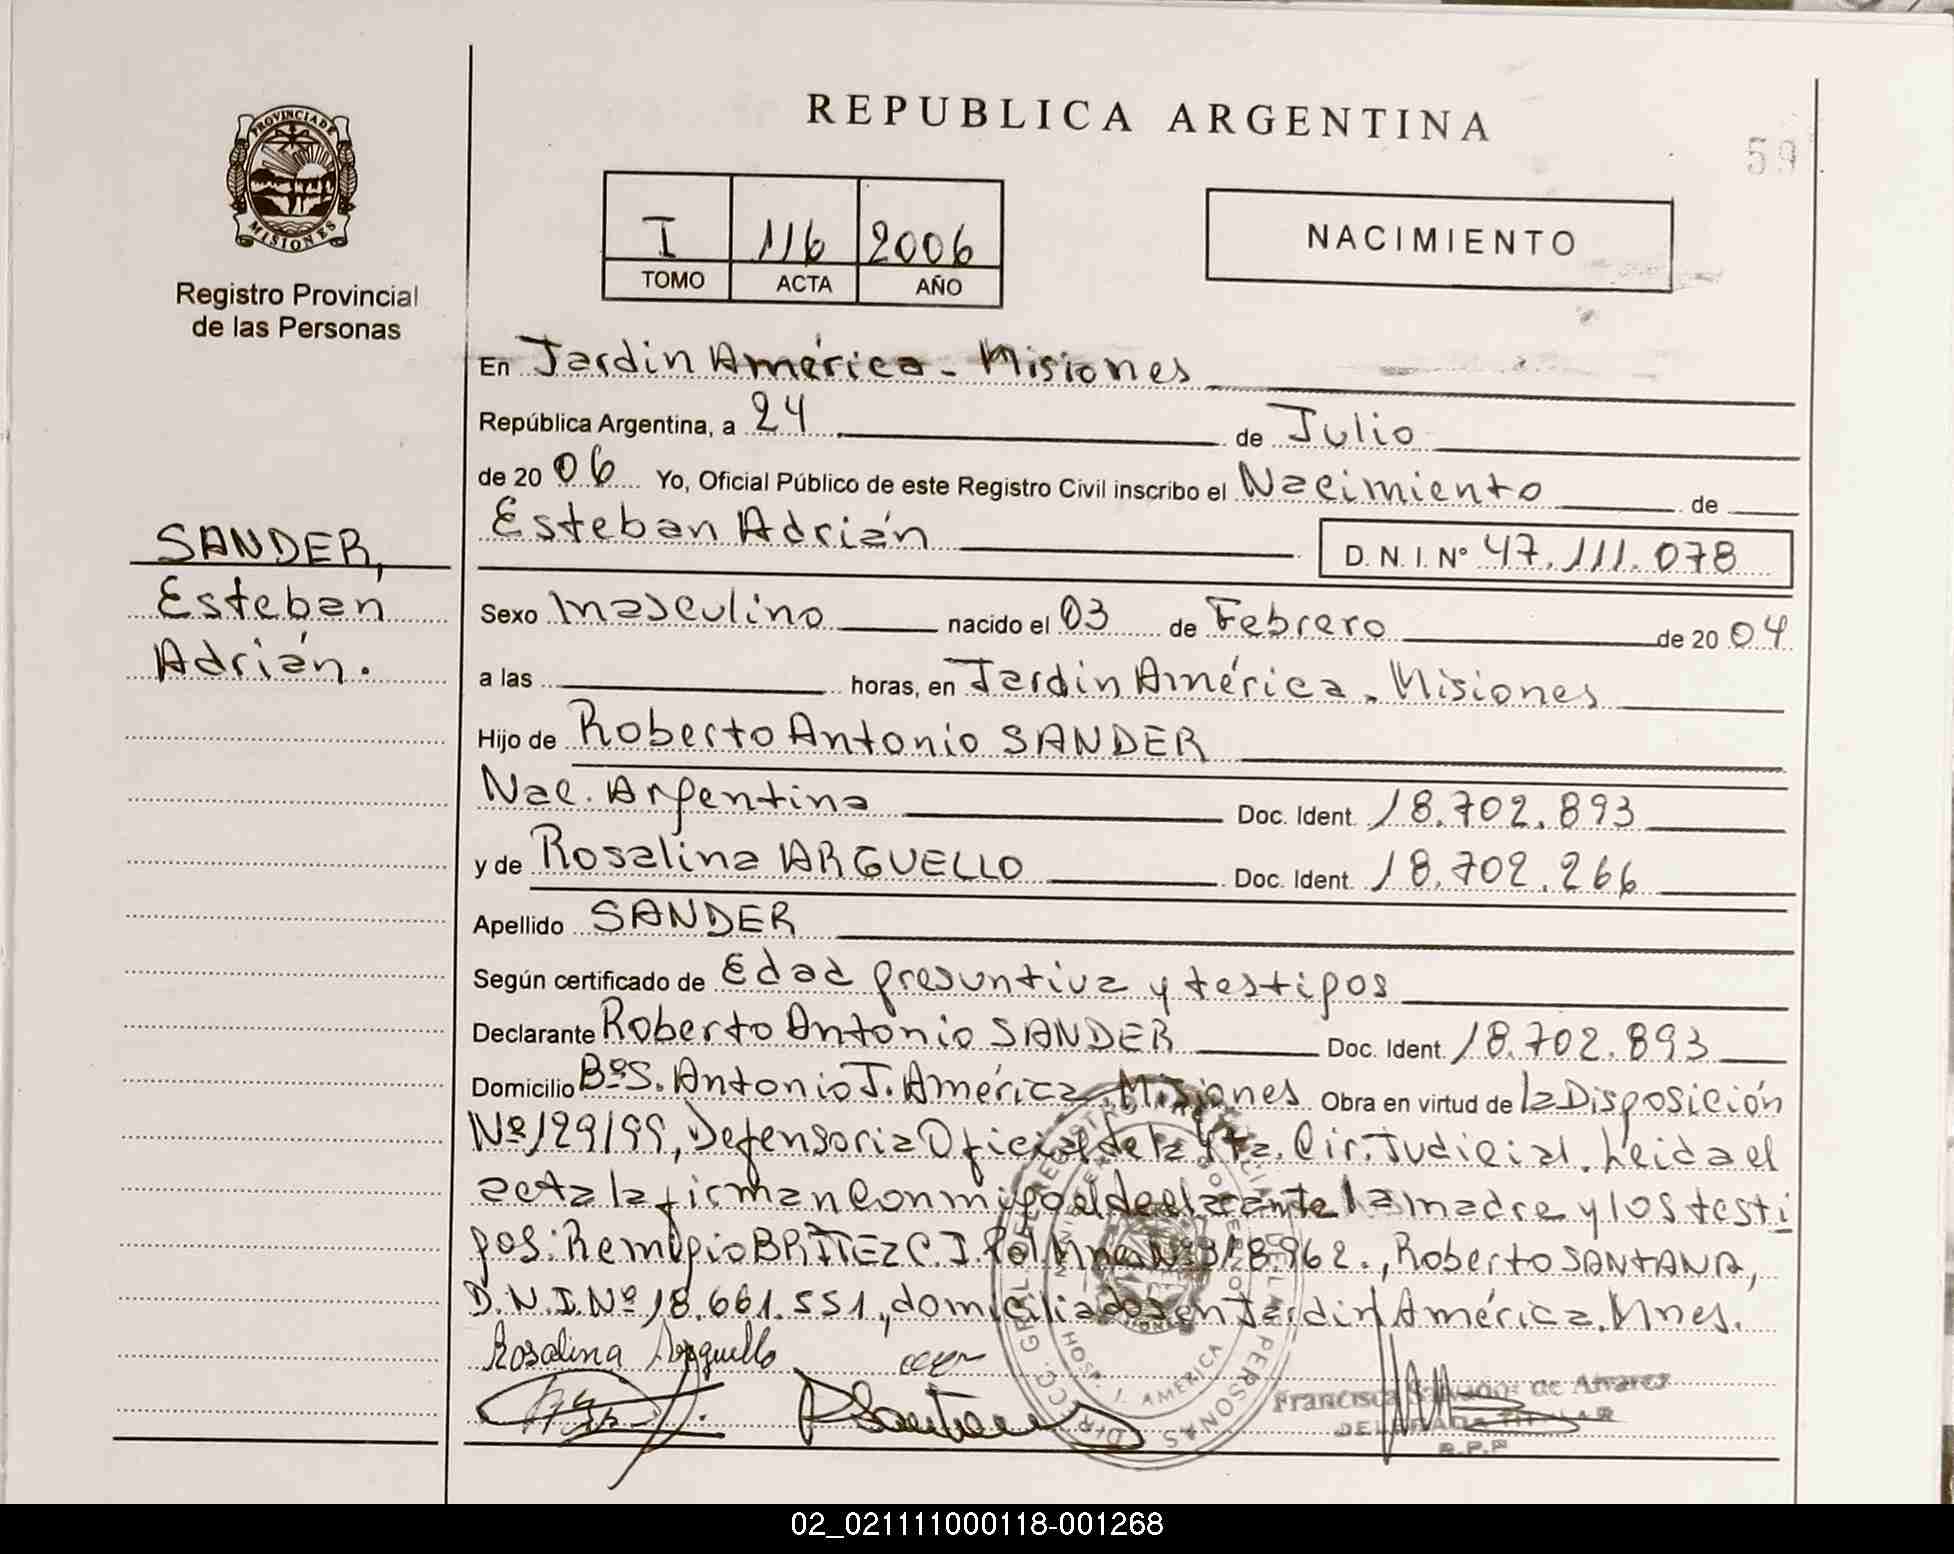 REPUBLICA ARGENTINA
59
PROVINCIA DE
MISIONES
Registro Provincial
de las Personas
I 116 2006
TOMO ACTA AÑO
NACIMIENTO
En Jardín América - Misiones
República Argentina, a 24 de Julio
de 2006 Yo, Oficial Público de este Registro Civil inscribo el Nacimiento de
Esteban Adrián D. N. I. N° 47.111.078
SANDER,
Esteban
Adrián.
Sexo masculino nacido el 03 de Febrero de 2004
a las horas, en Jardín América - Misiones
Hijo de Roberto Antonio SANDER
Nac. Argentina Doc. Ident. 18.702.893
y de Rosalina ARGUELLO Doc. Ident. 18.702.266
Apellido SANDER
Según certificado de Edad presuntiva y testigos
Declarante Roberto Antonio SANDER Doc. Ident. 18.702.893
Domicilio Bº S. Antonio J. América. Misiones Obra en virtud de la Disposición
Nº 129/99, Defensoria Oficial de la 4ta. Cir. Judicial. Leida el
acta la firman conmigo el declarante la madre y los testi
gos: Remigio BRITEZ C.I. Pol. Mnes Nº 318.962., Roberto SANTANA,
D.N.I. Nº 18.661.551., domiciliados en Jardín América. Mnes.
Rosalina Arguello
HOSP. J. AMERICA
Francisca de Alvarez
DELEGADA TITULAR
R.P.P
02_021111000118-001268